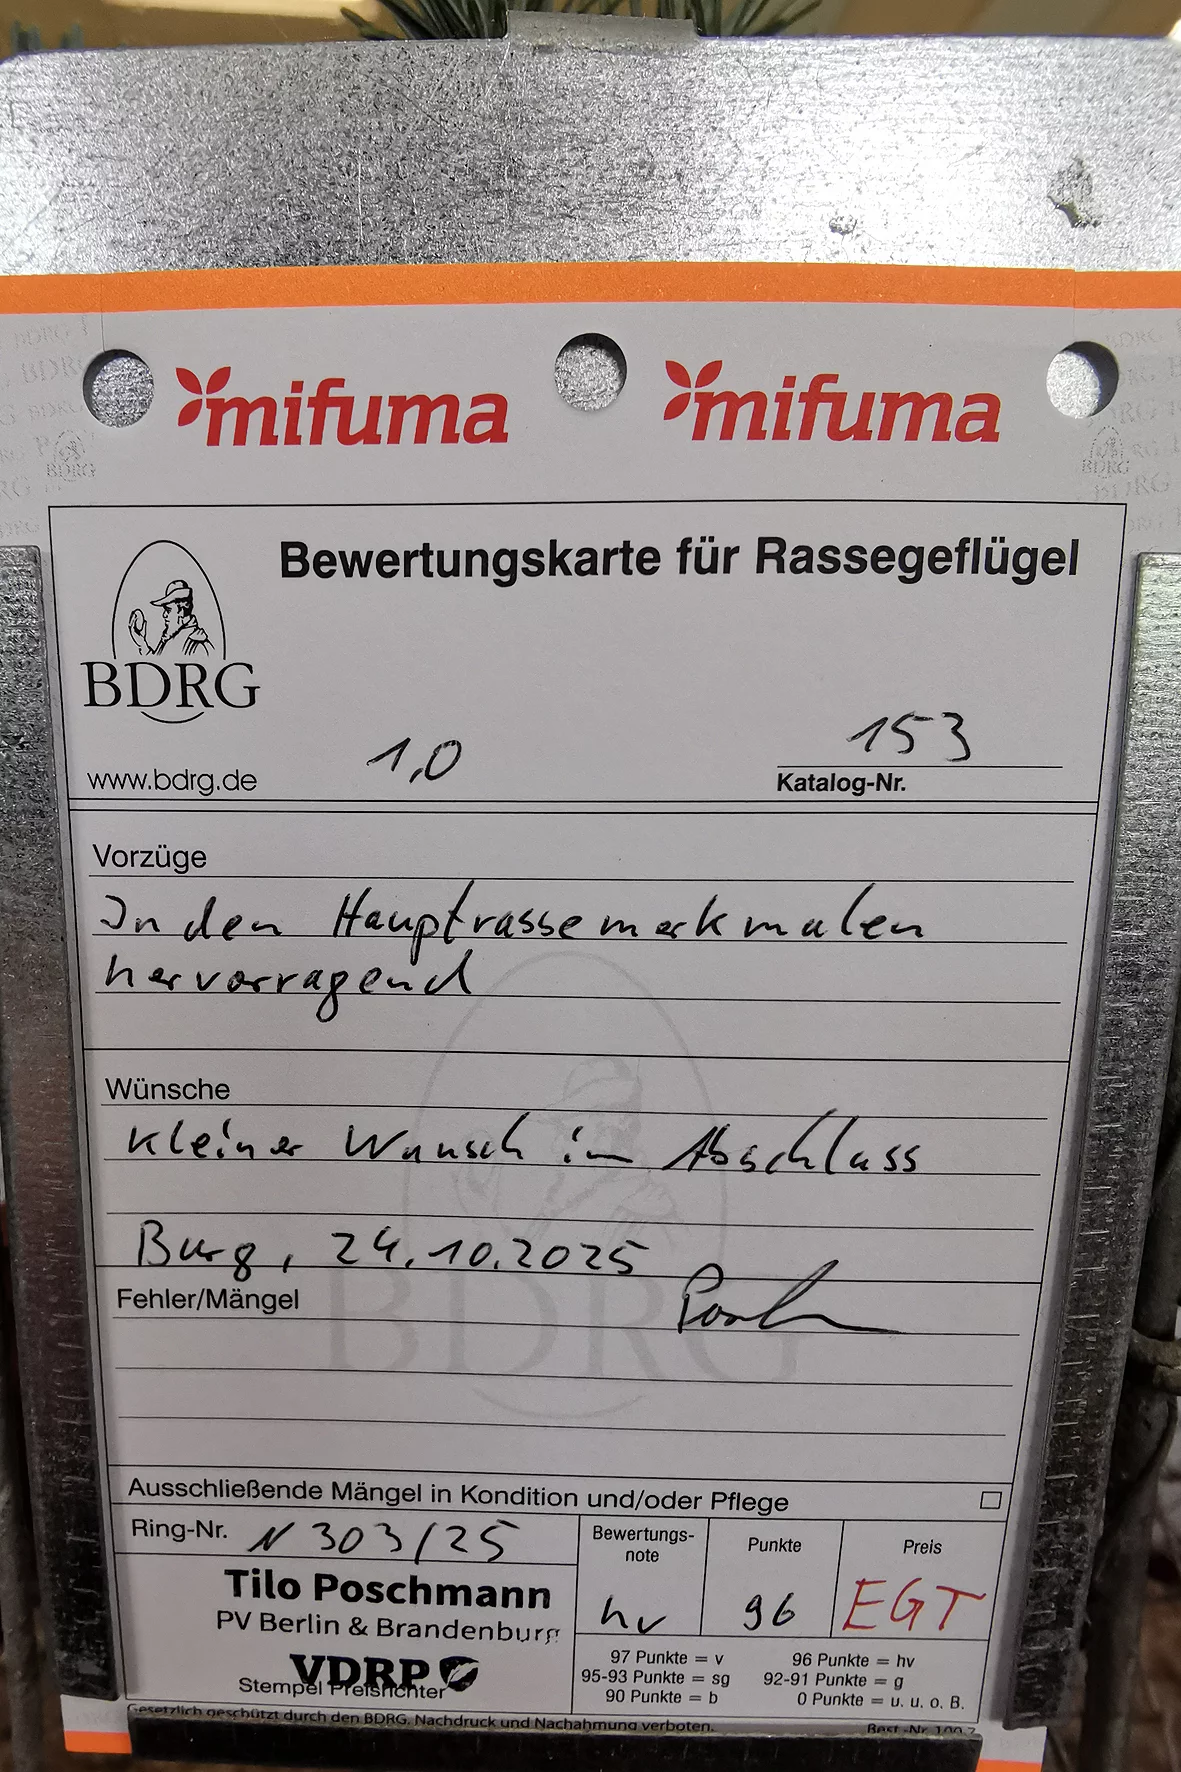 mifuma mifuma
Bewertungskarte für Rassegeflügel
BDRG
www.bdrg.de
1,0
153
Katalog-Nr.
Vorzüge
In den Hauptrassemerkmalen
hervorragend
Wünsche
kleiner Wunsch im Abschluss
Burg, 24.10.2025
Fehler/Mängel
BDRG
Ausschließende Mängel in Kondition und/oder Pflege
Ring-Nr. N 303/25
Bewertungs-
note
hv
Punkte
96
Preis
EGT
Tilo Poschmann
PV Berlin & Brandenburg
VDRP
Stempel Preisrichter
97 Punkte = v 96 Punkte = hv
95-93 Punkte = sg 92-91 Punkte = g
90 Punkte = b 0 Punkte = u. u. o. B.
Gesetzlich geschützt durch den BDRG. Nachdruck und Nachahmung verboten.